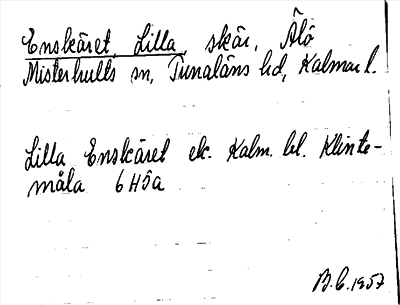 Enskäret, Lilla, skär, Älö
Misterhults sn, Tunaläns hd, Kalmar l.
Lilla Enskäret ek. Kalm. bl. Klinte-
måla 6 H ö a
B.C. 1957